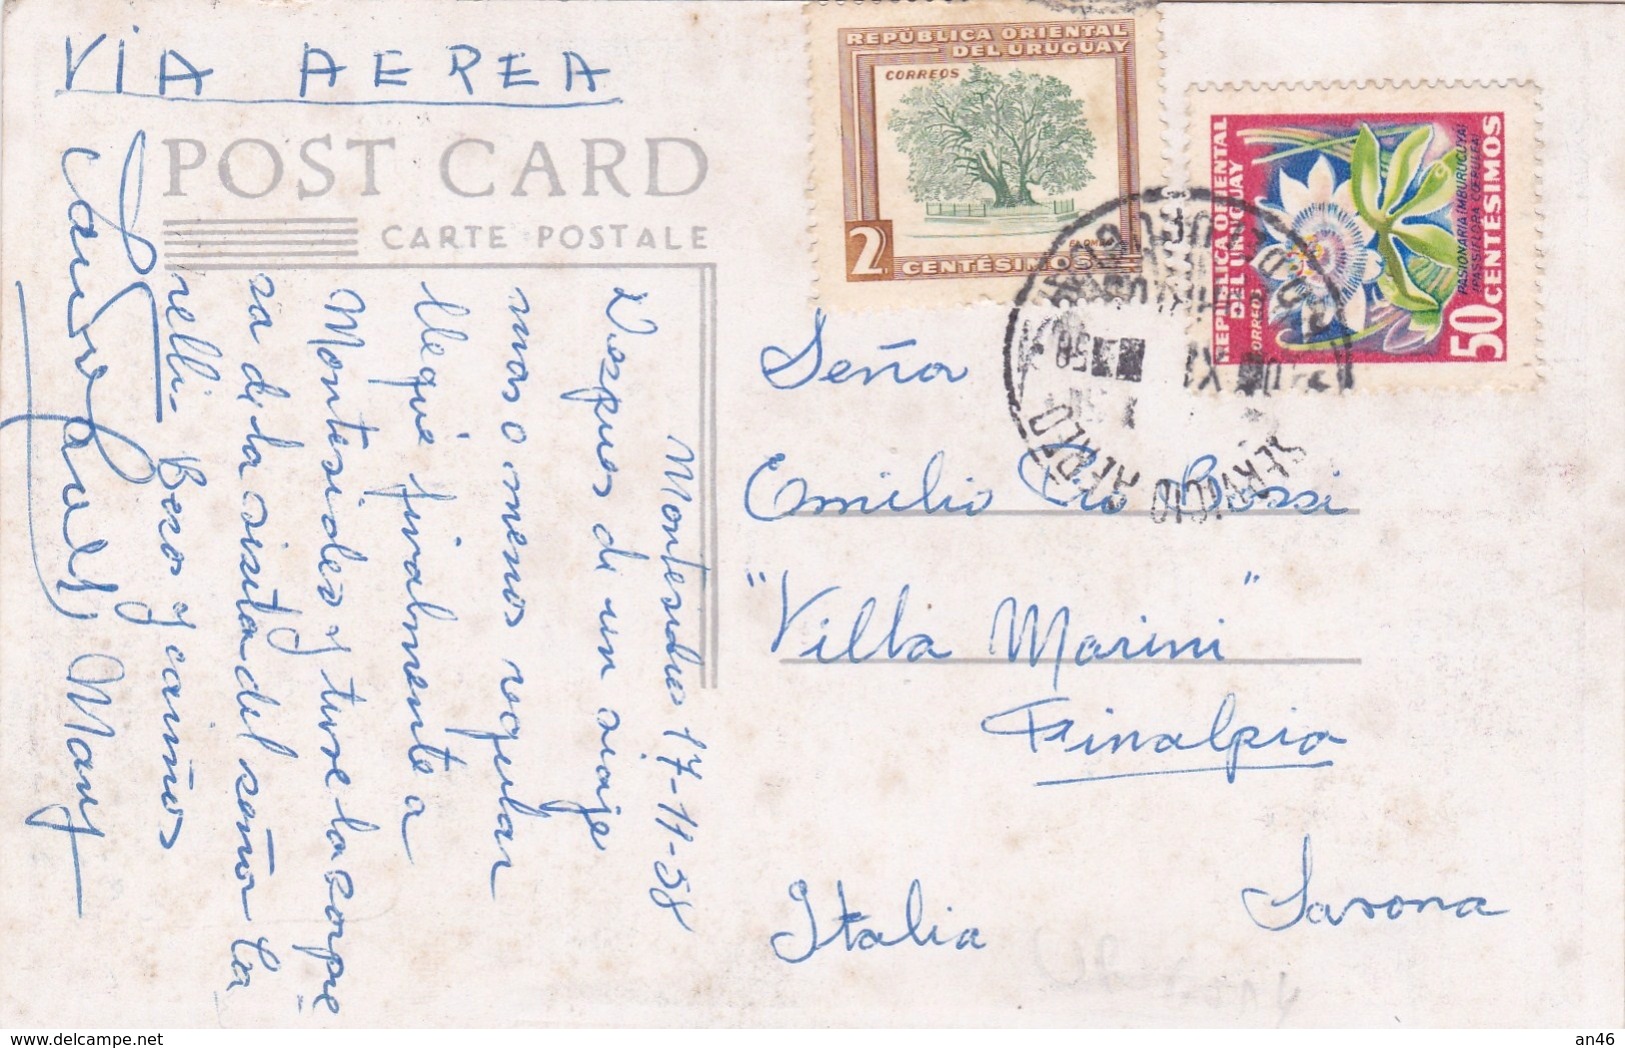 VIA AEREA
POST CARD
CARTE POSTALE
REPÚBLICA ORIENTAL
DEL URUGUAY
CORREOS
EL OMBÚ
2 CENTÉSIMOS
REPUBLICA ORIENTAL
DEL URUGUAY
CORREOS
PASIONARIA (MBURUCUYA)
(PASSIFLORA CŒRULEA)
50 CENTÉSIMOS
SERVICIO AEREO
Montevideo 17-11-58
Despues de un viaje
mas o menos regular
llegué finalmente a
Montevideo y tuve la sorpre
sa de la visita del señor Ca
nelli. Besos y cariños
Mary
Seña
Emilio Pio Bossi
"Villa Marini"
Finalpia
Savona
Italia
an46